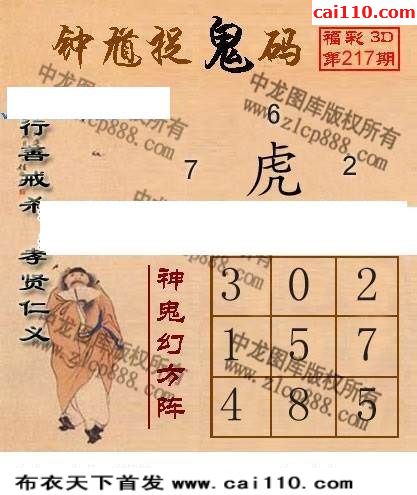 cai110.com
钟馗捉鬼码
福彩 3D
第217期
中龙图库版权所有
www.zlcp888.com
6
7 虎 2
行善戒杀 孝贤仁义
神鬼幻方阵
3 0 2
1 5 7
4 8 5
中龙图库版权所有
www.zlcp888.com
布衣天下首发 www.cai110.com